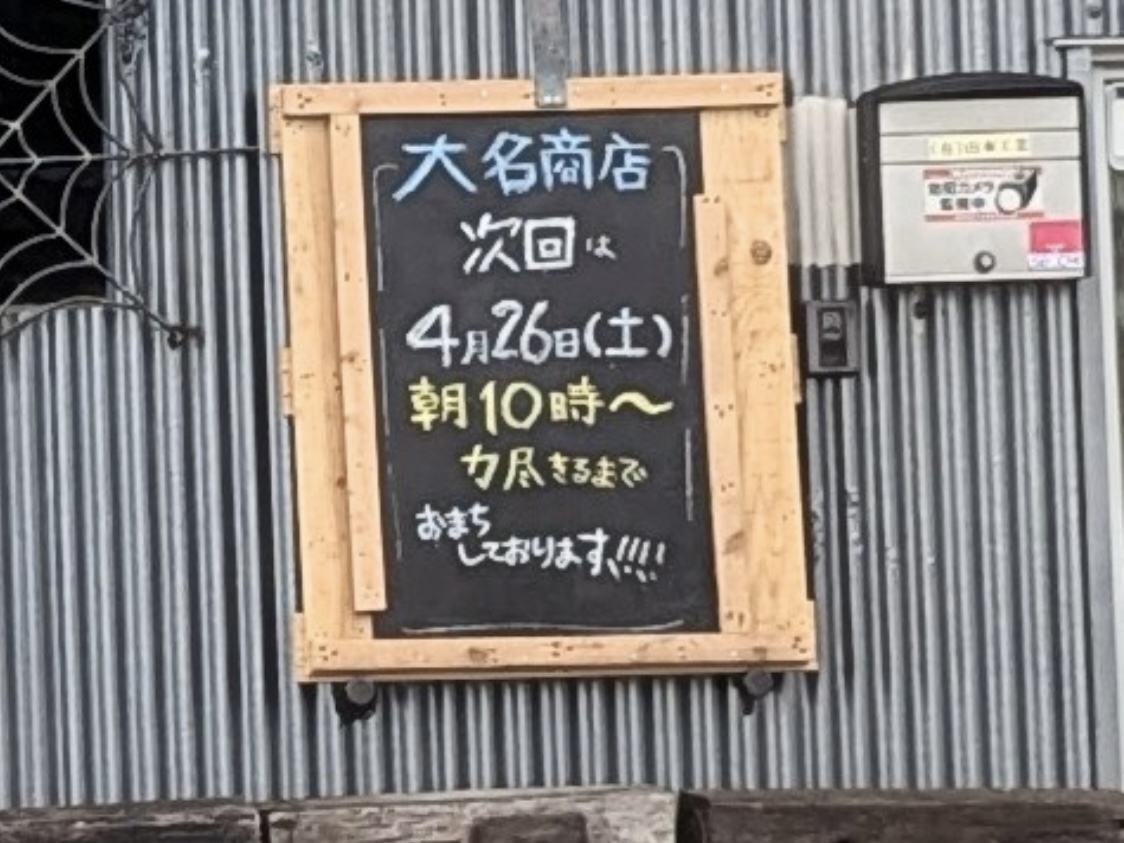 大名商店
次回は
4月26日(土)
朝10時〜
力尽きるまで
おまち
しております!!!!
防犯カメラ
監視中